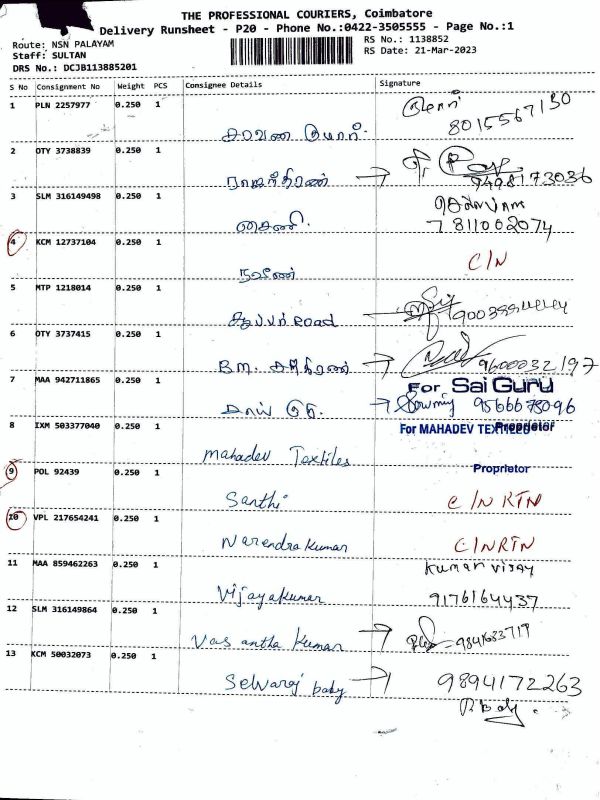 THE PROFESSIONAL COURIERS, Coimbatore
Delivery Runsheet - P20 - Phone No.:0422-3505555 - Page No.:1
Route: NSN PALAYAM
RS No.: 1138852
Staff: SULTAN
RS Date: 21-Mar-2023
DRS No.: DCJB113885201
S No Consignment No Weight PCS Consignee Details Signature
1 PLN 2257977 0.250 1
8015567130
2 OTY 3738839 0.250 1
ராஜந்திரன் → 9498173036
3 SLM 316149498 0.250 1
7811002074
4 KCM 12737104 0.250 1
நவீன் C/N
5 MTP 1218014 0.250 1
Road
6 OTY 3737415 0.250 1
B.M. → 9600032197
7 MAA 942711865 0.250 1
For Sai Guru
→ Sowmiy 9566675096
8 IXM 503377040 0.250 1
For MAHADEV TEXTILES
Proprietor
Mahadev Textiles
9 POL 92439 0.250 1
Proprietor
Santhi C/N RTN
10 VPL 217654241 0.250 1
Narendra Kumar C/N RTN
11 MAA 859462263 0.250 1
Kumar Vijay
Vijayakumar 9176164437
12 SLM 316149864 0.250 1
Vasantha Kumar →
13 KCM 50032073 0.250 1
Selvaraj baby → 9894172263